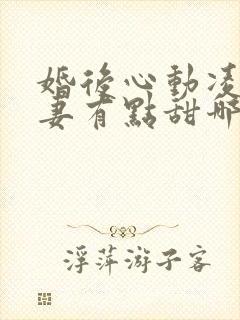 婚後心動凌
妻有點甜哪
浮萍游子客